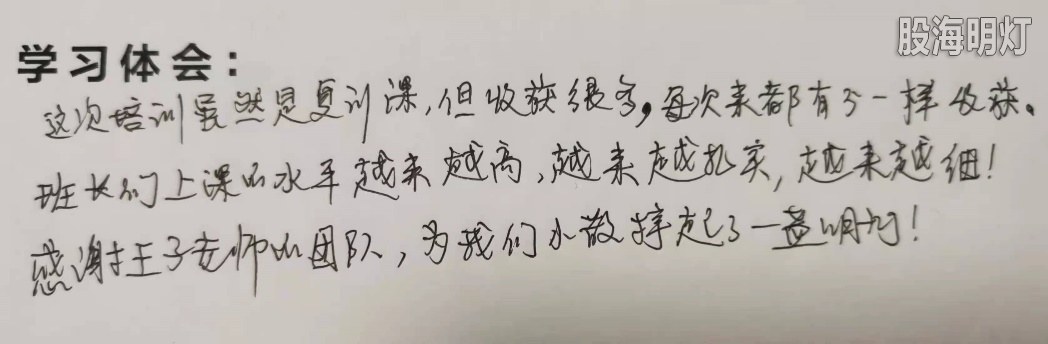 股海明灯
学习体会：
这次培训虽然是复训课，但收获很多，每次来都有不一样收获。
班长们上课的水平越来越高，越来越扎实，越来越细！
感谢王子老师的团队，为我们小散撑起了一盏明灯！